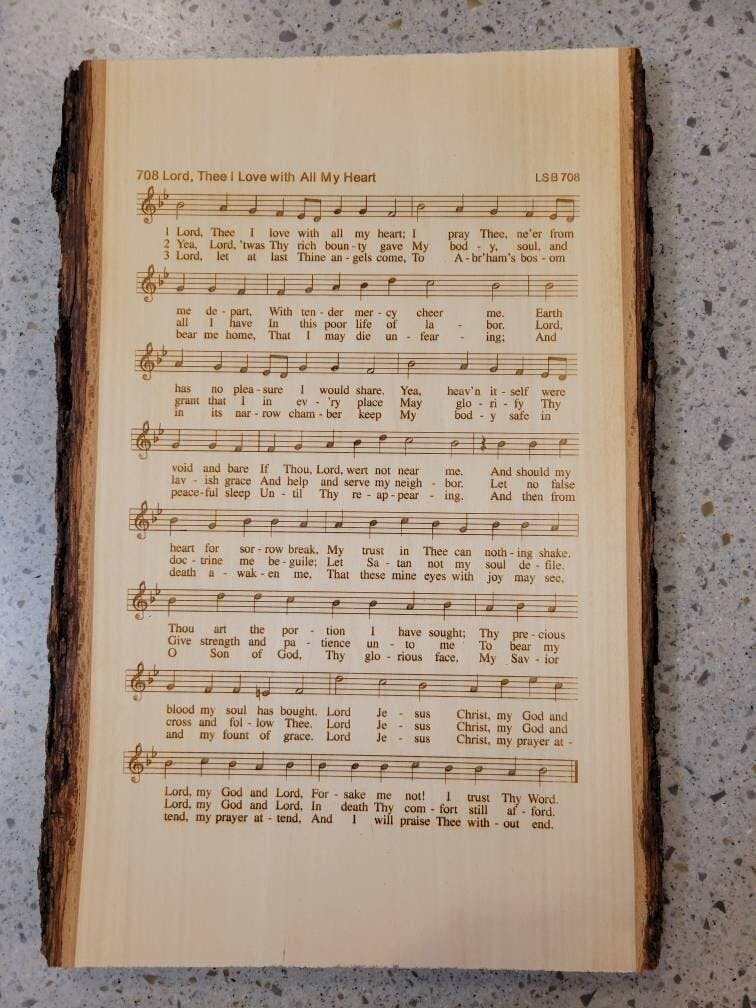 708 Lord, Thee I Love with All My Heart LSB 708
1 Lord, Thee I love with all my heart; I pray Thee, ne'er from
2 Yea, Lord, 'twas Thy rich boun - ty gave My bod - y, soul, and
3 Lord, let at last Thine an - gels come, To A - br'ham's bos - om
me de - part, With ten - der mer - cy cheer me. Earth
all I have In this poor life of la - bor. Lord,
bear me home, That I may die un - fear - ing; And
has no plea - sure I would share. Yea, heav'n it - self were
grant that I in ev - 'ry place May glo - ri - fy Thy
in its nar - row cham - ber keep My bod - y safe in
void and bare If Thou, Lord, wert not near me. And should my
lav - ish grace And help and serve my neigh - bor. Let no false
peace - ful sleep Un - til Thy re - ap - pear - ing. And then from
heart for sor - row break, My trust in Thee can noth - ing shake.
doc - trine me be - guile; Let Sa - tan not my soul de - file.
death a - wak - en me, That these mine eyes with joy may see,
Thou art the por - tion I have sought; Thy pre - cious
Give strength and pa - tience un - to me To bear my
O Son of God, Thy glo - rious face, My Sav - ior
blood my soul has bought. Lord Je - sus Christ, my God and
cross and fol - low Thee. Lord Je - sus Christ, my God and
and my fount of grace. Lord Je - sus Christ, my prayer at -
Lord, my God and Lord, For - sake me not! I trust Thy Word.
Lord, my God and Lord, In death Thy com - fort still af - ford.
tend, my prayer at - tend, And I will praise Thee with - out end.